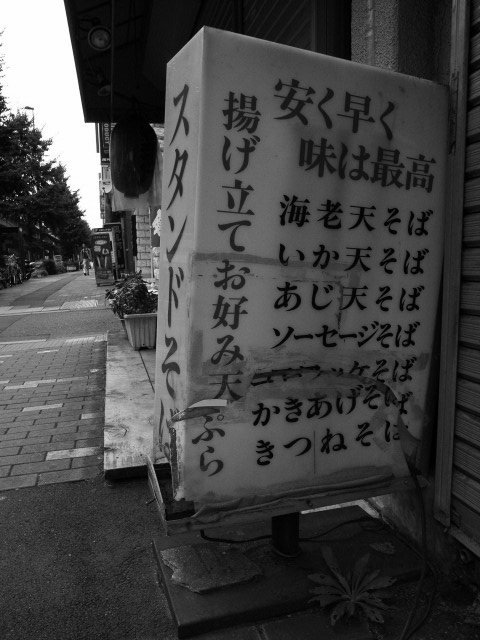 安く早く
味は最高
揚げ立てお好み天ぷら
海老天そば
いか天そば
あじ天そば
ソーセージそば
コロッケそば
かきあげそば
きつねそば
スタンドそば